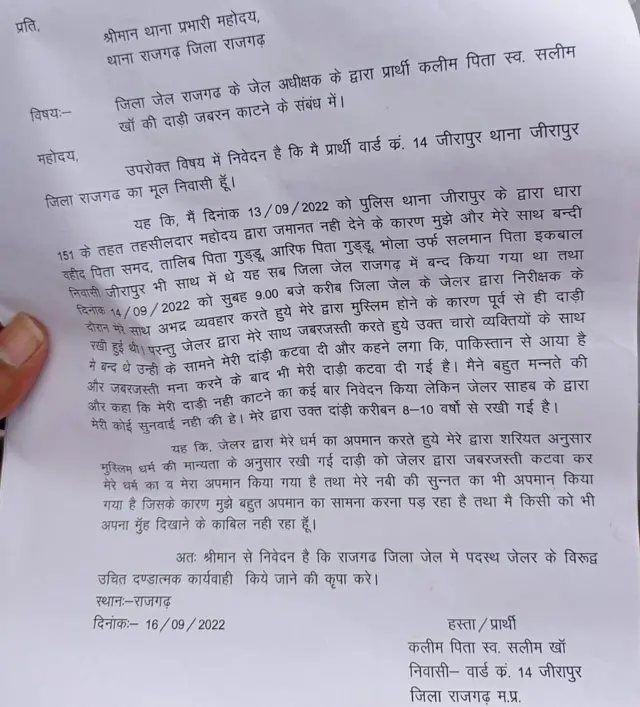 प्रति,
श्रीमान थाना प्रभारी महोदय,
थाना राजगढ़ जिला राजगढ़
विषयः— जिला जेल राजगढ के जेल अधीक्षक के द्वारा प्रार्थी कलीम पिता स्व. सलीम
खॉ की दाड़ी जबरन काटने के संबंध में।
महोदय,
उपरोक्त विषय में निवेदन है कि मै प्रार्थी वार्ड कं. 14 जीरापुर थाना जीरापुर
जिला राजगढ का मूल निवासी हूॅं।
यह कि, मैं दिनांक 13/09/2022 को पुलिस थाना जीरापुर के द्वारा धारा
151 के तहत तहसीलदार महोदय द्वारा जमानत नही देने के कारण मुझे और मेरे साथ बन्दी
वहीद पिता समद, तालिब पिता गुड्डू, आरिफ पिता गुड्डू, भोला उर्फ सलमान पिता इकबाल
निवासी जीरापुर भी साथ में थे यह सब जिला जेल राजगढ़ में बन्द किया गया था तथा
दिनांक 14/09/2022 को सुबह 9.00 बजे करीब जिला जेल के जेलर द्वारा निरीक्षक के
दौरान मेरे साथ अभद्र व्यवहार करते हुये मेरे द्वारा मुस्लिम होने के कारण पूर्व से ही दाड़ी
रखी हुई थी। परन्तु जेलर द्वारा मेरे साथ जबरजस्ती करते हुये उक्त चारो व्यक्तियों के साथ
मे बन्द थे उन्ही के सामने मेरी दांड़ी कटवा दी और कहने लगा कि, पाकिस्तान से आया है
और जबरजस्ती मना करने के बाद भी मेरी दाड़ी कटवा दी गई है। मैने बहुत मन्नते की
और कहा कि मेरी दाड़ी नही काटने का कई बार निवेदन किया लेकिन जेलर साहब के द्वारा
मेरी कोई सुनवाई नही की है। मेरे द्वारा उक्त दांड़ी करीबन 8-10 वर्षो से रखी गई है।
यह कि, जेलर द्वारा मेरे धर्म का अपमान करते हुये मेरे द्वारा शरियत अनुसार
मुस्लिम धर्म की मान्यता के अनुसार रखी गई दाड़ी को जेलर द्वारा जबरजस्ती कटवा कर
मेरे धर्म का व मेरा अपमान किया गया है तथा मेरे नबी की सुन्नत का भी अपमान किया
गया है जिसके कारण मुझे बहुत अपमान का सामना करना पड़ रहा है तथा मै किसी को भी
अपना मुॅंह दिखाने के काबिल नही रहा हूॅं।
अतः श्रीमान से निवेदन है कि राजगढ जिला जेल मे पदस्थ जेलर के विरूद्व
उचित दण्डात्मक कार्यवाही किये जाने की कृपा करे।
स्थानः—राजगढ़
दिनांकः— 16/09/2022
हस्ता/प्रार्थी
कलीम पिता स्व. सलीम खॉ
निवासी— वार्ड कं. 14 जीरापुर
जिला राजगढ म.प्र.